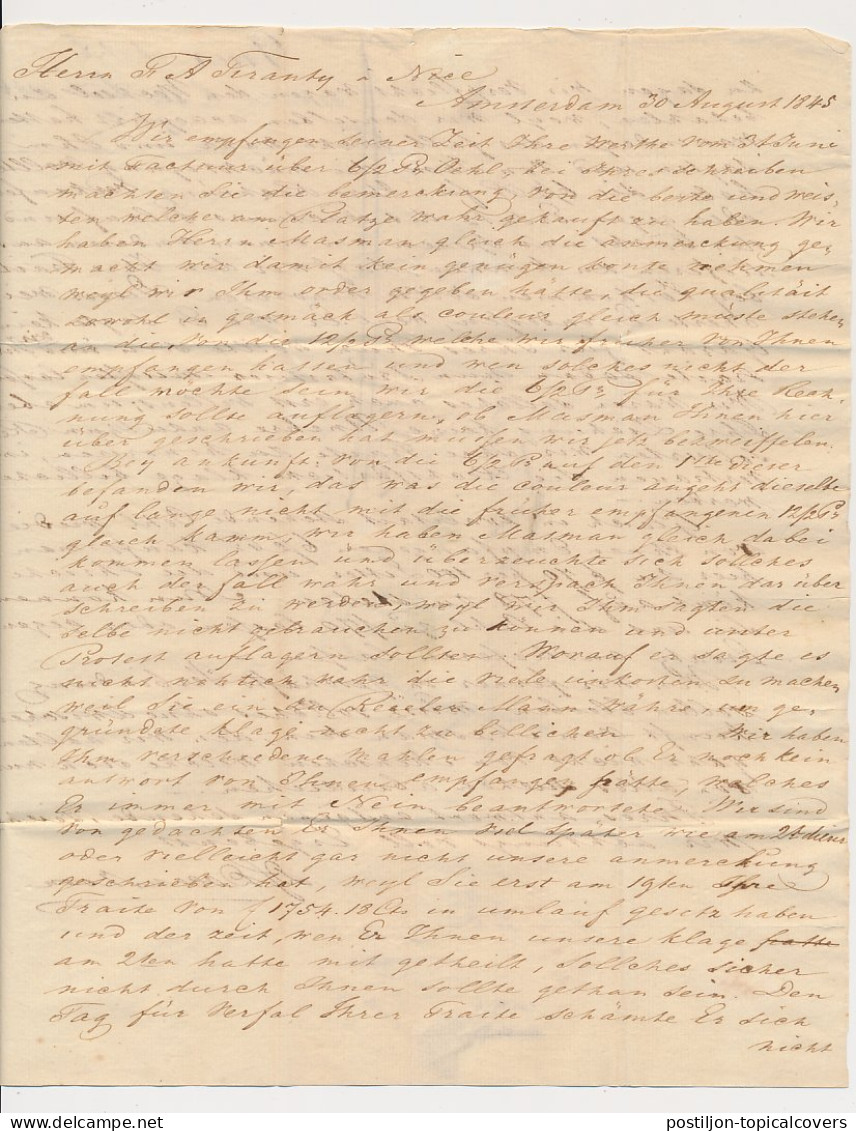 Herrn F A Feranty a Nice
Amsterdam 30 August 1845
Wir empfingen seiner Zeit Ihre werthe vom 3t Juni
mit Factour über 6/2 Ps Oehl, bei dieses schreiben
machten Sie die bemerckung von die beste und weis-
ten welche am Platze wahr gekauft zu haben. Wir
haben Herrn Masman gleich die anmerckung ge-
macht wir damit kein genügen konte nehmen
weyl wir Ihm order gegeben hätte, die qualitäit
zowohl in gesmack als couleur gleich müste stehen
an die von die 12/2 Ps welche wir früher von Ihnen
empfangen hatten und wen solches nicht der
fall mochte sein wir die 6/2 Ps für Ihre Rech-
nung sollte auflagern, ob Masman Ihnen hier
über geschrieben hat müssen wir jetz bezweiffelen.
Bey ankunft von die 6/2 Ps auf den 1ten dieser
befanden wir, das was die couleur angeht dieselbe
auf lange nicht mit die früher empfangenen 12/2 Ps
gleich kamm, wir haben Masman gleich dabei
kommen lassen und überzeuchte sich solches
auch der fall wahr und verspach Ihnen dar über
schreiben zu werden, weyl wir Ihm sagten die
selbe nicht gebrauchen zu können und unter
Protest auflagern sollten. Worauf er sagte es
nicht nöhtich wahr die viele unkosten zu machen
weil Sie ein zu Reeeler Mann währe, um ge-
gründete klage nicht zu billichen. Wir haben
Ihm verschiedene mahlen gefragt ob Er noch kein
antwort von Ihnen empfangen hätte, welches
Er immer mit Nein beantwortete. Wir sind
von gedachten Er Ihnen viel später wie am 2t dieser
oder vielleicht gar nicht unsere anmerckung
geschrieben hat, weyl Sie erst am 19ten Ihre
Traite von f 1754.18 Cts in umlauf gesetz haben
und der zeit, wen Er Ihnen unsere klage hatte
am 2ten hatte mit getheilt, sollches sicher
nicht durch Ihnen sollte gethan sein. Den
Tag für Verfal Ihrer Traite schämte Er sich
nicht
postiljon-topicalcovers